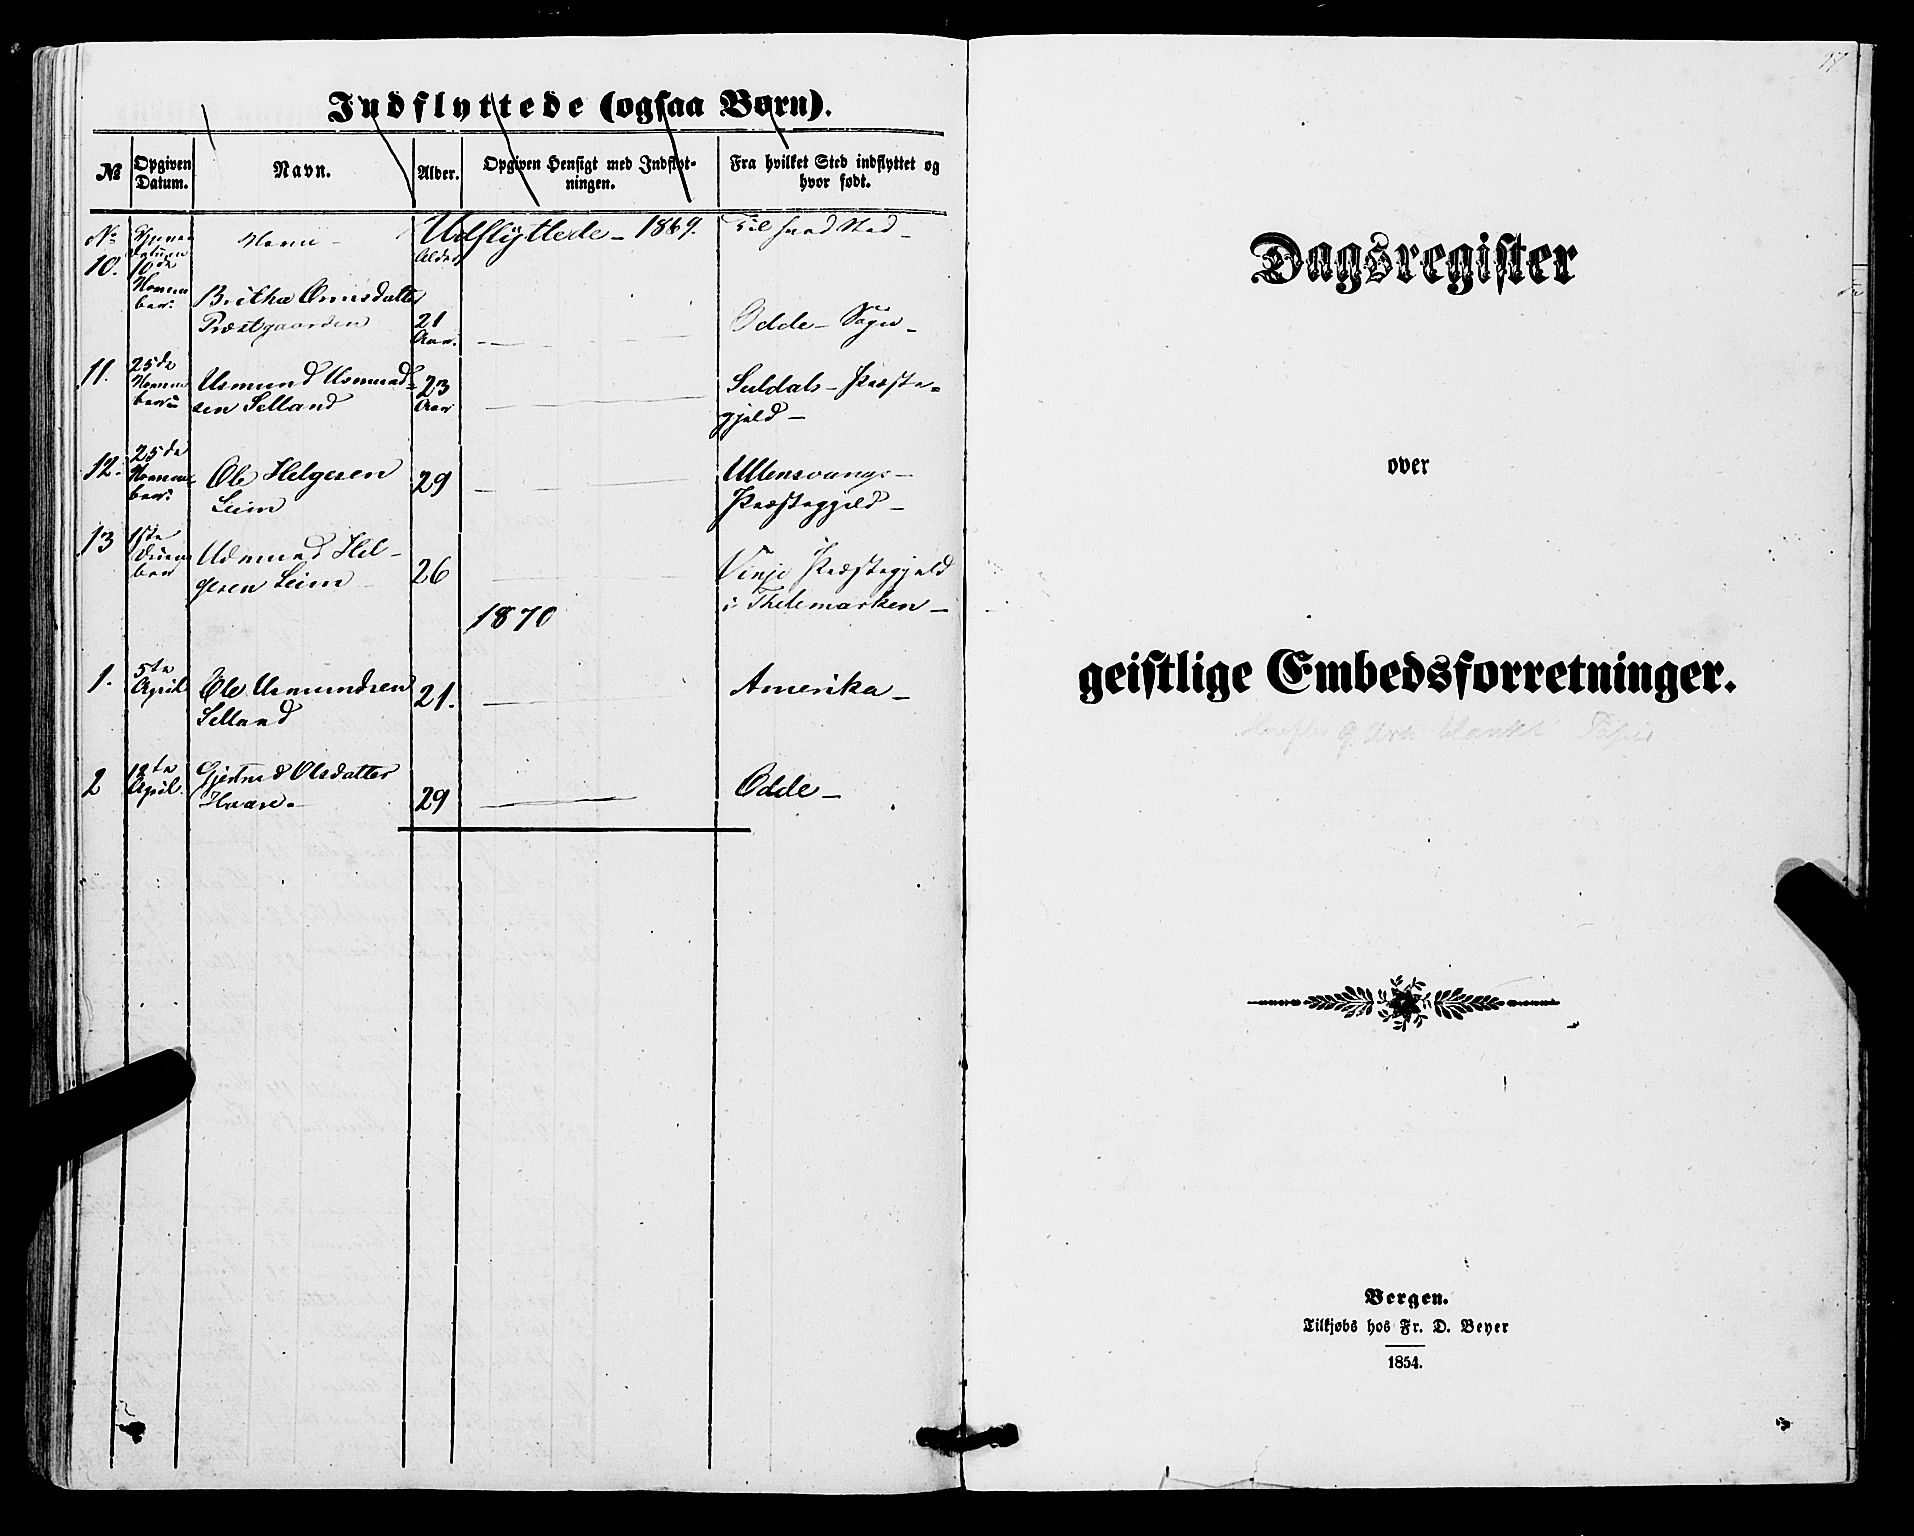 Indflyttede (ogsaa Børn).
№ Opgiven Datum. Navn. Alder. Opgiven Hensigt med Indflyt-ningen. Fra hvilket Sted indflyttet og hvor født.
Udflyttede – 1869.
No Navn – Alder Til hvad Sted –
10. 10de Novem
ber: Britha
Præstgaarden 21 Aar. Odde – Sogn –
11. 25de Novem
ber: Asmund Asmund-
sen Selland 23 Aar Suldals – Præste-
gjeld –
12. 25de Novem
ber: Ole Helgesen
Leim 29 Ullensvangs –
Præstegjeld –
13 1ste
ber Hel-
gesen Leim 26 Vinje Præstegjeld
i Thelemarken –
1870
1. 5te April Ole Asmundsen
Selland 21. Amerika –
2 April. Gjertrud Olsdatter
29 Odde –
Dagsregister
over
geistlige Embedsforretninger.
blankt Papir
Bergen.
Tilkjøbs hos Fr. D. Beyer
1854.